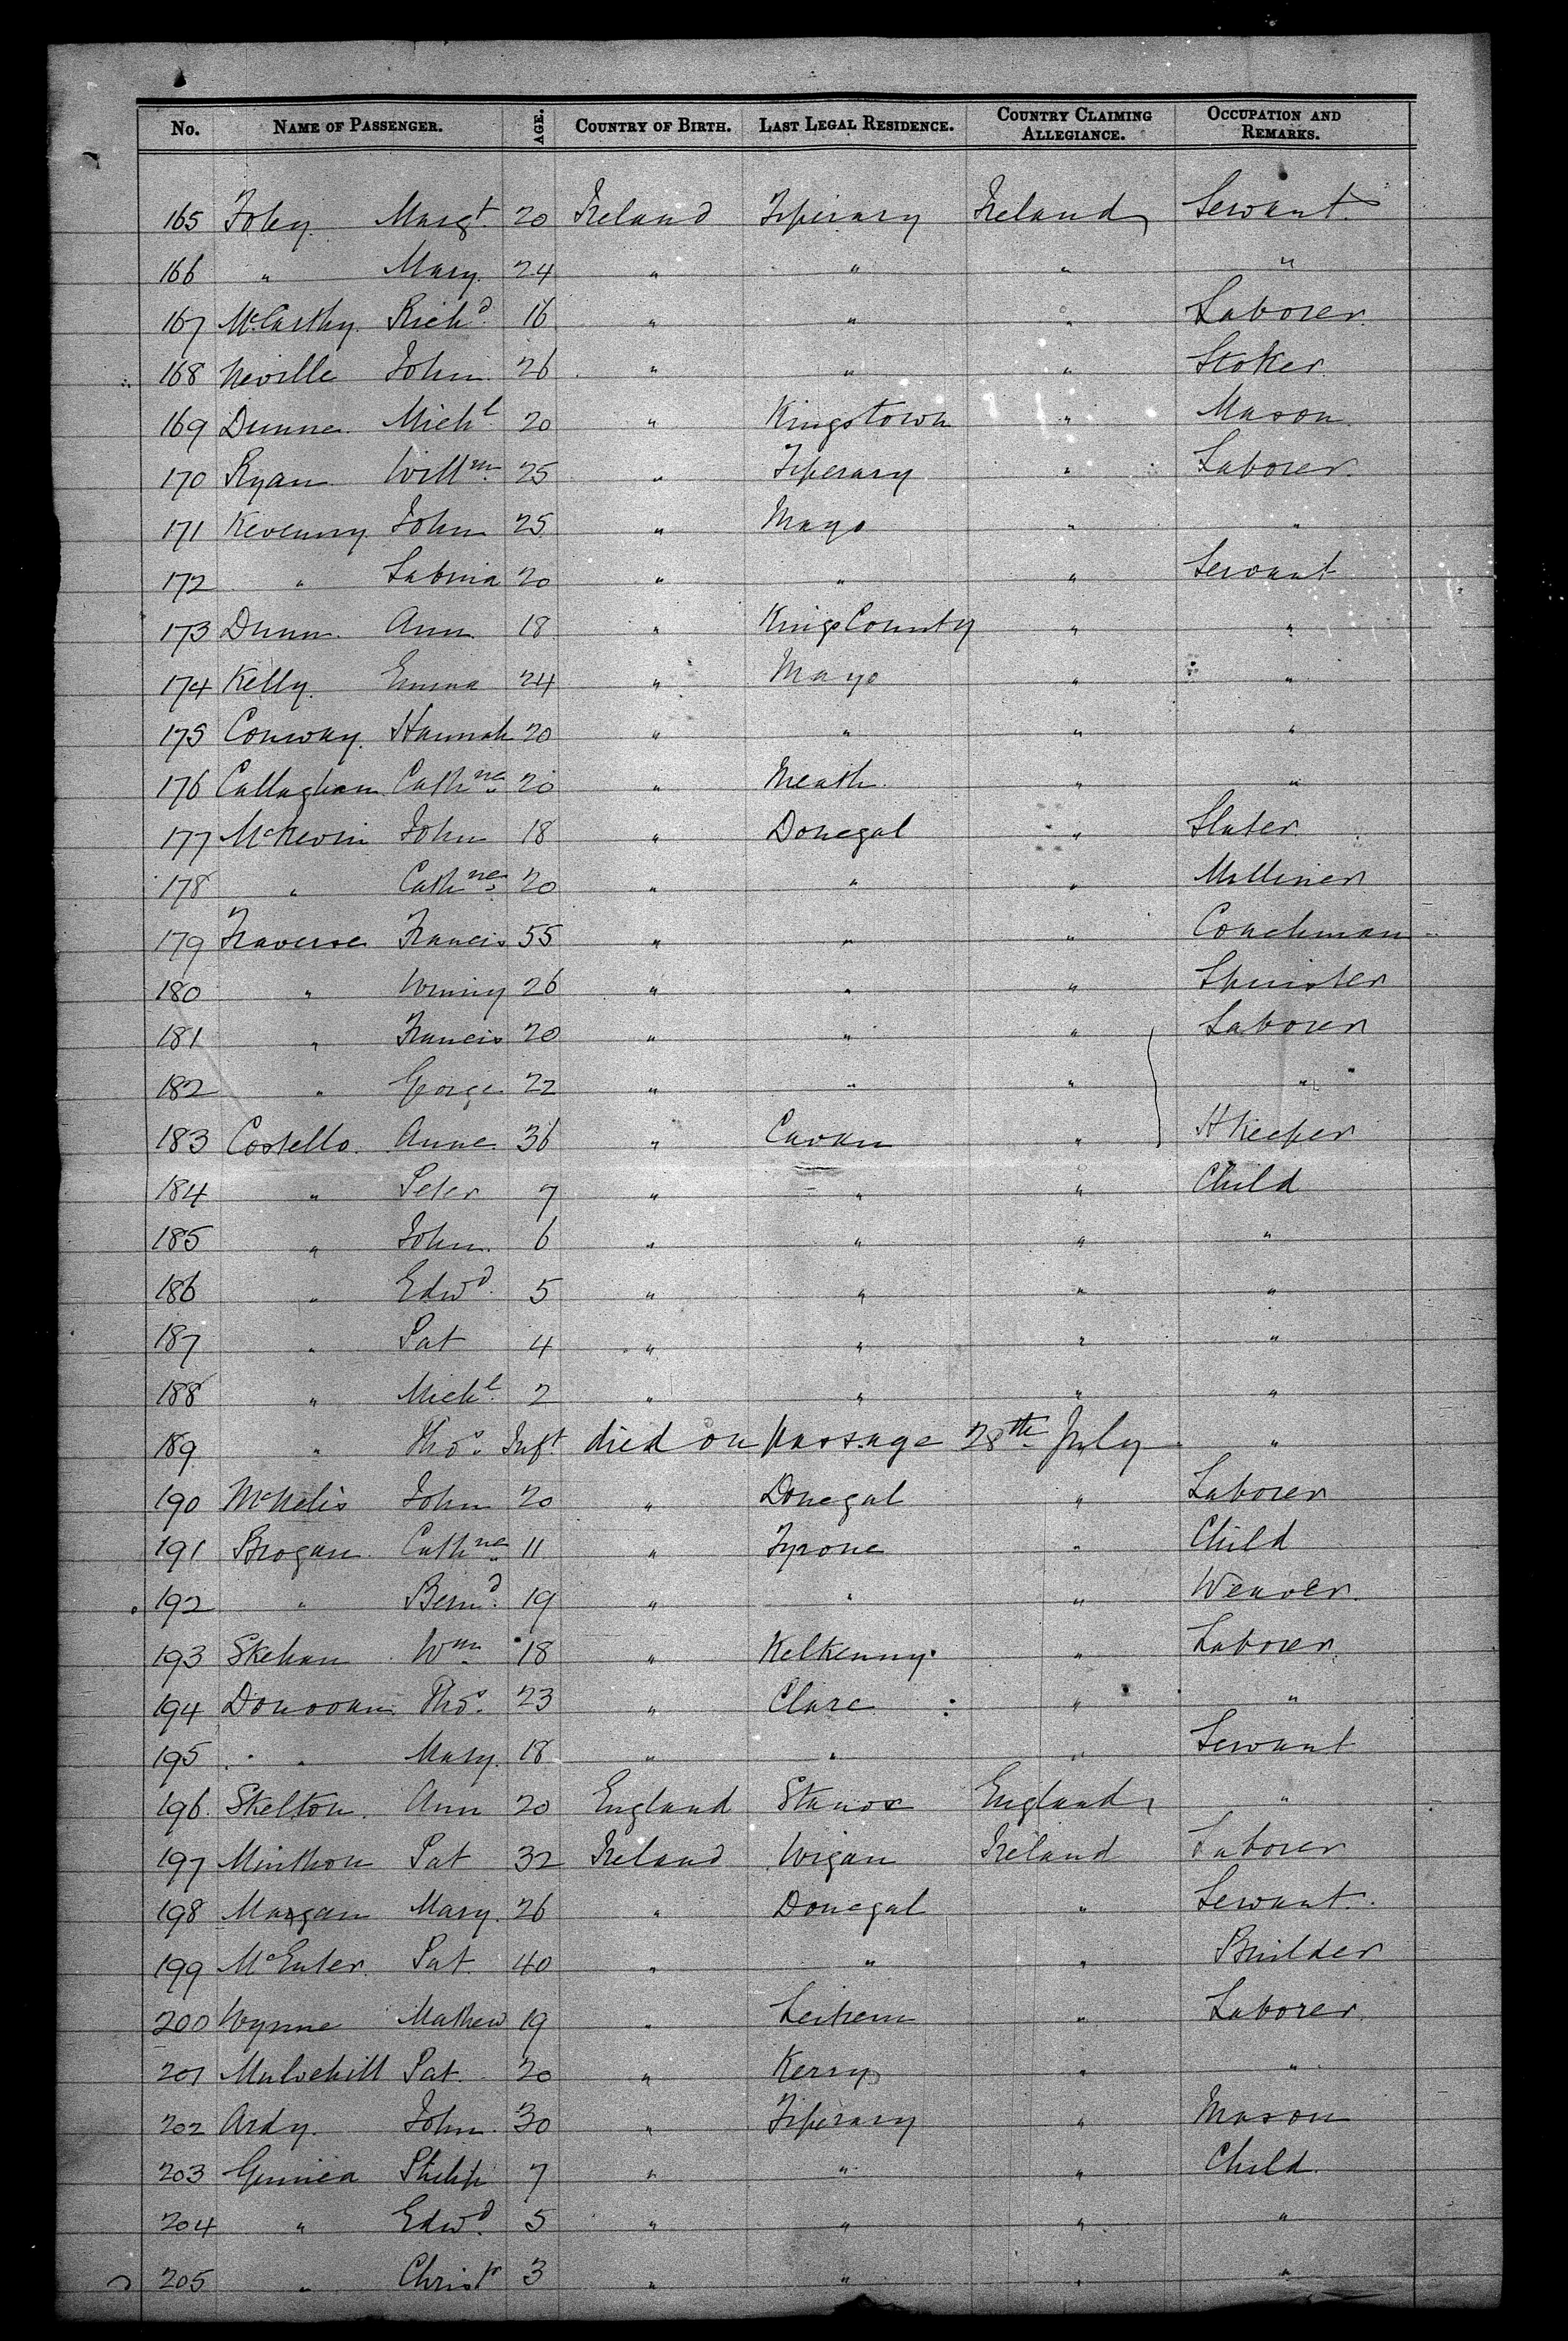 No. NAME OF PASSENGER. AGE. COUNTRY OF BIRTH. LAST LEGAL RESIDENCE. COUNTRY CLAIMING ALLEGIANCE. OCCUPATION AND REMARKS.
165 Foley. Margt. 20 Ireland Tiperary Ireland Servant
166 " Mary. 24 " " " "
167 McCarthy. Richd. 16 " " " Laborer.
168 Neville John 26 " " " Stoker.
169 Dunne. Michl. 20 " Kingstown " Mason.
170 Ryan Willm. 25 " Tiperary " Laborer.
171 Kevenny. John 25 " Mayo " "
172 " Sabina 20 " " " Servant
173 Dunn. Ann. 18 " Kings County " "
174 Kelly. Emma 24 " Mayo " "
175 Conway. Hannah 20 " " " "
176 Callaghan Cathne. 20 " Meath. " "
177 John 18 " Donegal " Slater
178 " Cathne. 20 " " " Milliner
179 Traverse Francis 55 " " " Coachman
180 " Winny 26 " " " Spinster
181 " Francis 20 " " " Laborer
182 " George 22 " " " "
183 Costello. Anne. 36 " Cavan " H Keeper
184 " Peter 7 " " " Child
185 " John. 6 " " " "
186 " Edwd. 5 " " " "
187 " Pat 4 " " " "
188 " Michl. 2 " " " "
189 " Thos. Inft. died on passage 28th July "
190 McNelis John 20 " Donegal " Laborer
191 Brogan. Cathne. 11 " Tyrone " Child
192 " Bernd. 19 " " " Weaver.
193 Skehan Wm. 18 " Kelkenny. " Laborer.
194 Donovan. Thos. 23 " Clare " "
195 " Mary. 18 " " " Servant
196. Skelton. Ann 20 England England "
197 Pat 32 Ireland Wigan Ireland Laborer
198 Margan Mary. 26 " Donegal " Servant.
199 McEnter. Pat. 40 " " " Builder
200 Wynne Mathew 19 " Leitrem " Laborer
201 Mulvehill Pat. 20 " Kerry " "
202 Ardy. John. 30 " Tiperary " Mason
203 Guinea Philip 7 " " " Child.
204 " Edwd. 5 " " " "
205 " Christr 3 " " " "